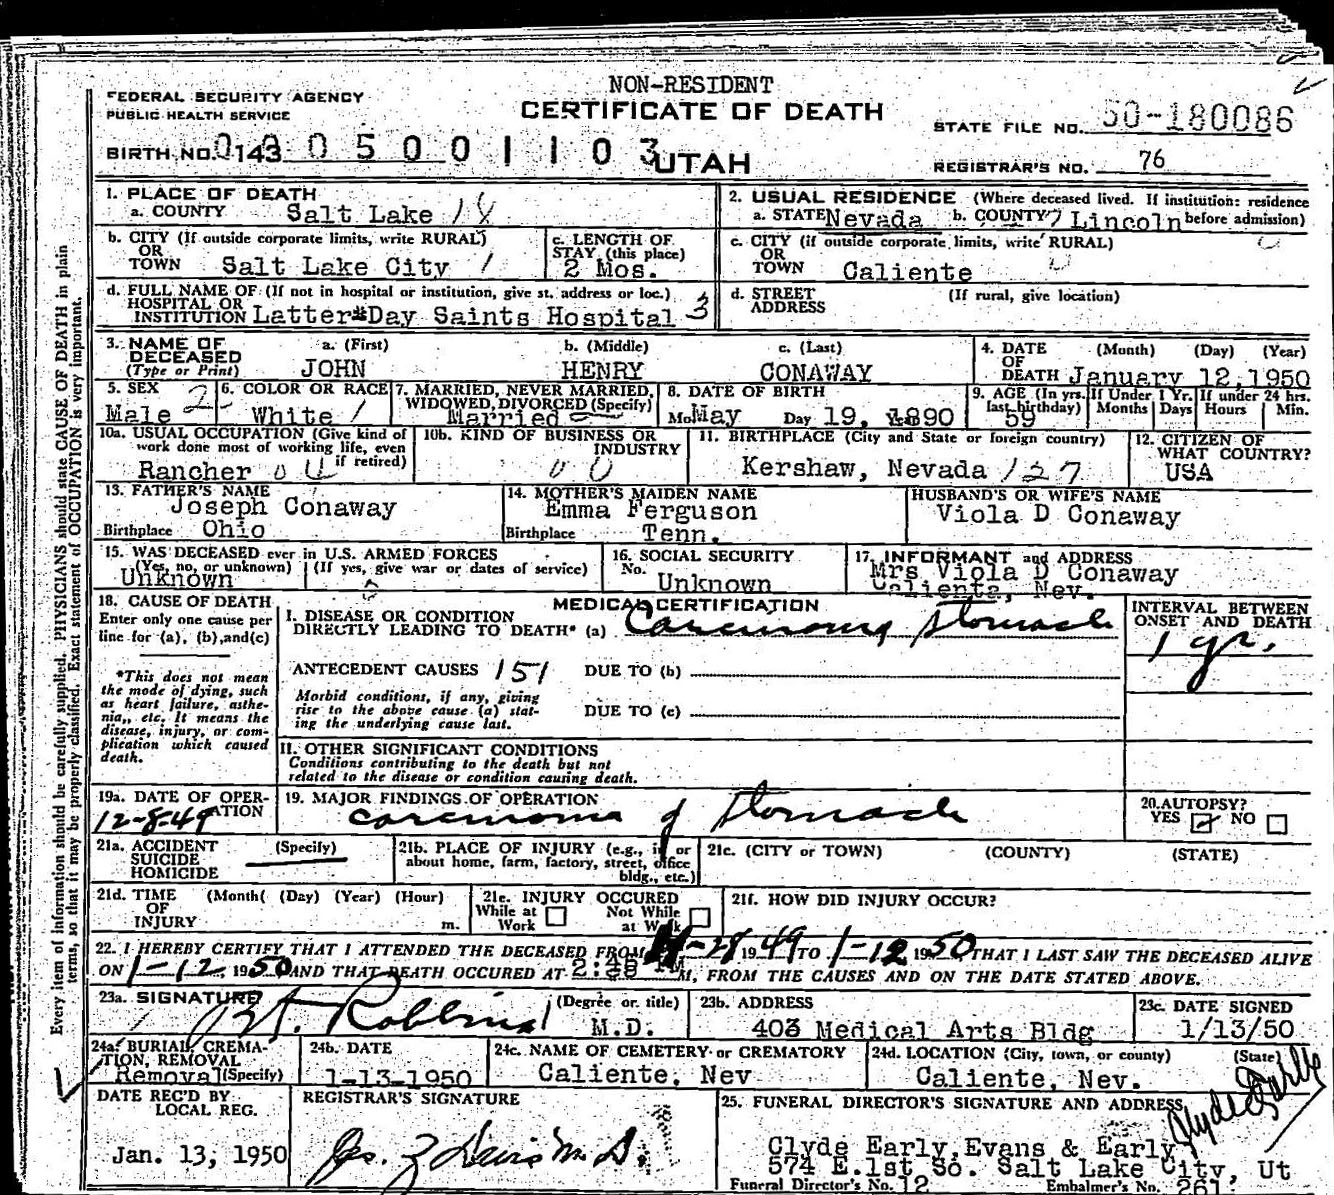 NON-RESIDENT
FEDERAL SECURITY AGENCY
PUBLIC HEALTH SERVICE
CERTIFICATE OF DEATH
STATE FILE NO. 50-180086
BIRTH NO. 143 0 5 0 0 1 1 0 3 UTAH
REGISTRAR'S NO. 76
1. PLACE OF DEATH
a. COUNTY Salt Lake 18
2. USUAL RESIDENCE (Where deceased lived. If institution: residence before admission)
a. STATE Nevada b. COUNTY Lincoln
b. CITY (If outside corporate limits, write RURAL)
OR
TOWN Salt Lake City 1
c. LENGTH OF STAY (this place)
2 Mos.
c. CITY (if outside corporate limits, write RURAL)
OR
TOWN Caliente
d. FULL NAME OF (If not in hospital or institution, give st. address or loc.)
HOSPITAL OR
INSTITUTION Latter-Day Saints Hospital 3
d. STREET ADDRESS (If rural, give location)
3. NAME OF DECEASED (Type or Print)
a. (First) JOHN
b. (Middle) HENRY
c. (Last) CONAWAY
4. DATE OF DEATH (Month) (Day) (Year)
January 12, 1950
5. SEX Male 2
6. COLOR OR RACE White 1
7. MARRIED, NEVER MARRIED, WIDOWED, DIVORCED (Specify)
Married
8. DATE OF BIRTH
Mo. May Day 19, 1890
9. AGE (In yrs. last birthday) 59
If Under 1 Yr. Months Days
If under 24 hrs. Hours Min.
10a. USUAL OCCUPATION (Give kind of work done most of working life, even if retired)
Rancher
10b. KIND OF BUSINESS OR INDUSTRY
11. BIRTHPLACE (City and State or foreign country)
Kershaw, Nevada 127
12. CITIZEN OF WHAT COUNTRY?
USA
13. FATHER'S NAME
Joseph Conaway
Birthplace Ohio
14. MOTHER'S MAIDEN NAME
Emma Ferguson
Birthplace Tenn.
HUSBAND'S OR WIFE'S NAME
Viola D Conaway
15. WAS DECEASED ever in U.S. ARMED FORCES
(Yes, no, or unknown) (If yes, give war or dates of service)
Unknown
16. SOCIAL SECURITY No.
Unknown
17. INFORMANT and ADDRESS
Mrs Viola D Conaway
Caliente, Nev.
18. CAUSE OF DEATH
Enter only one cause per line for (a), (b), and (c)
MEDICAL CERTIFICATION
I. DISEASE OR CONDITION
DIRECTLY LEADING TO DEATH* (a) Carcinoma Stomach
INTERVAL BETWEEN ONSET AND DEATH
1 yr.
*This does not mean the mode of dying, such as heart failure, asthenia, etc. It means the disease, injury, or complication which caused death.
ANTECEDENT CAUSES 151 DUE TO (b)
Morbid conditions, if any, giving rise to the above cause (a) stating the underlying cause last.
DUE TO (c)
II. OTHER SIGNIFICANT CONDITIONS
Conditions contributing to the death but not related to the disease or condition causing death.
19a. DATE OF OPERATION
12-8-49
19. MAJOR FINDINGS OF OPERATION
carcinoma of stomach
20. AUTOPSY?
YES NO
21a. ACCIDENT SUICIDE HOMICIDE (Specify)
21b. PLACE OF INJURY (e.g., in or about home, farm, factory, street, office bldg., etc.)
21c. (CITY or TOWN) (COUNTY) (STATE)
21d. TIME OF INJURY (Month) (Day) (Year) (Hour) m.
21e. INJURY OCCURED
While at Work Not While at Work
21f. HOW DID INJURY OCCUR?
22. I HEREBY CERTIFY THAT I ATTENDED THE DECEASED FROM 11-28 1949 TO 1-12 1950 THAT I LAST SAW THE DECEASED ALIVE
ON 1-12 1950 AND THAT DEATH OCCURED AT M, FROM THE CAUSES AND ON THE DATE STATED ABOVE.
23a. SIGNATURE Robbins (Degree or title) M.D.
23b. ADDRESS
403 Medical Arts Bldg
23c. DATE SIGNED
1/13/50
24a. BURIAL, CREMATION, REMOVAL (Specify)
Removal
24b. DATE
1-13-1950
24c. NAME OF CEMETERY or CREMATORY
Caliente, Nev
24d. LOCATION (City, town, or county) (State)
Caliente, Nev.
DATE REC'D BY LOCAL REG.
Jan. 13, 1950
REGISTRAR'S SIGNATURE
25. FUNERAL DIRECTOR'S SIGNATURE AND ADDRESS
Clyde Early
Clyde Early, Evans & Early
574 E. 1st So. Salt Lake City, Ut
Funeral Director's No. 12 Embalmer's No. 261
Every item of information should be carefully supplied. PHYSICIANS should state CAUSE OF DEATH in plain
terms, so that it may be properly classified. Exact statement of OCCUPATION is very important.